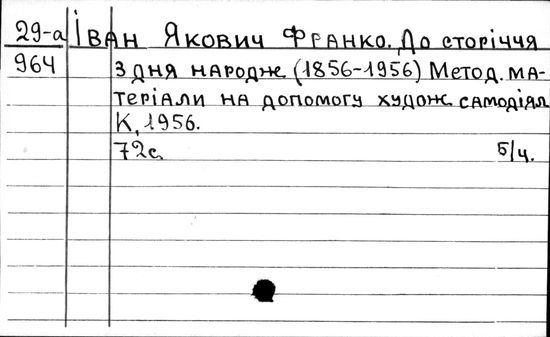 29-а Іван Якович Франко. До сторіччя
964 з дня народж. (1856-1956) Метод. ма-
теріали на допомогу худож. самодіял.
К, 1956.
72с. б/ц.